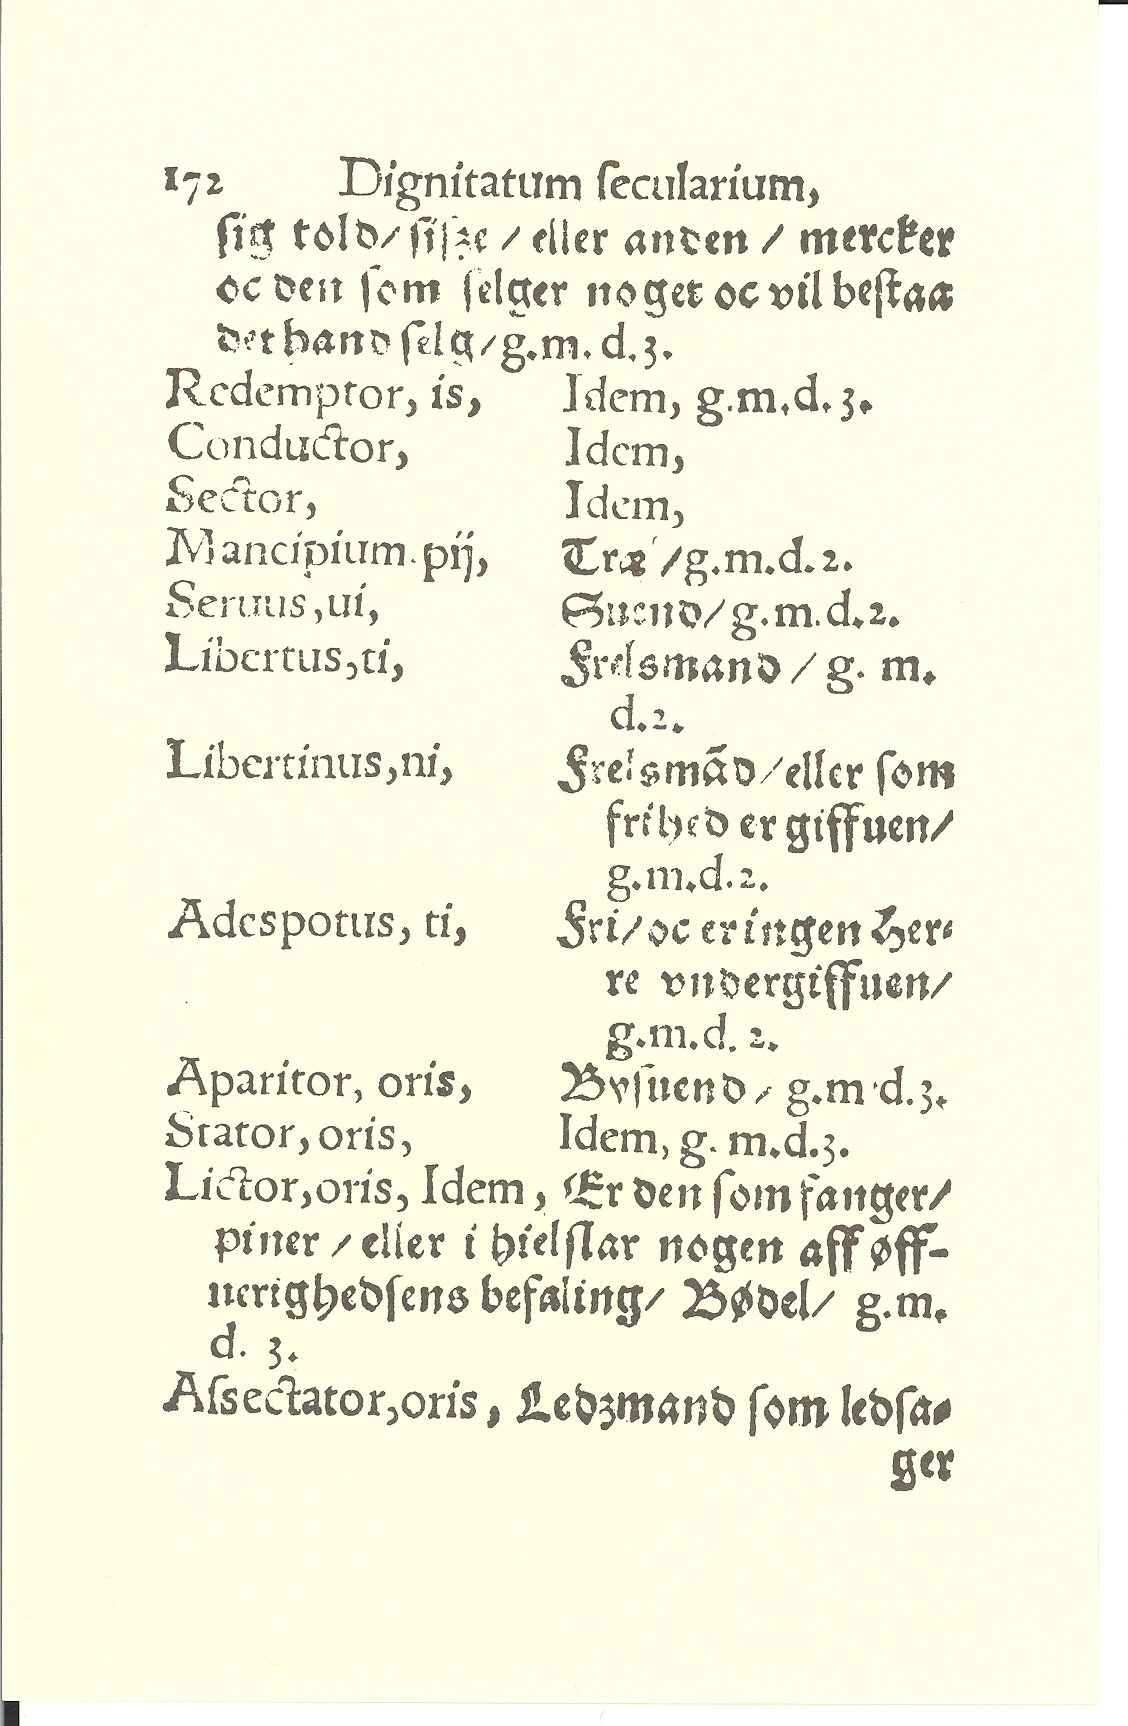 172 Dignitatum ſecularium,
ſig told/ ſiſze / eller anden / mercker
oc den ſom ſelger noget oc vil beſtaa
det hand ſelg/g.m. d.3.
Redemptor, is, Idem, g.m.d.3.
Conductor, Idem,
Sector, Idem,
Mancipium.pij, Træl/g.m.d.2.
Seruus,ui, Suend/g.m.d.2.
Libertus,ti, Frelsmand / g. m.
d.2.
Libertinus,ni, Frelsmãd/eller ſom
frihed er giffuen/
g.m.d.2.
Adespotus, ti, Fri/oc er ingen Her⸗
re vndergiffuen/
g.m.d. 2.
Aparitor, oris, Byſuend/ g.m.d.3.
Stator,oris, Idem, g. m.d.3.
Lictor,oris, Idem, Er den ſom fanger/
piner / eller i hielſlar nogen aff øff-
uerighedſens befaling/ Bødel/ g.m.
d. 3.
Aſsectator,oris, Ledzmand ſom ledſa⸗
ger